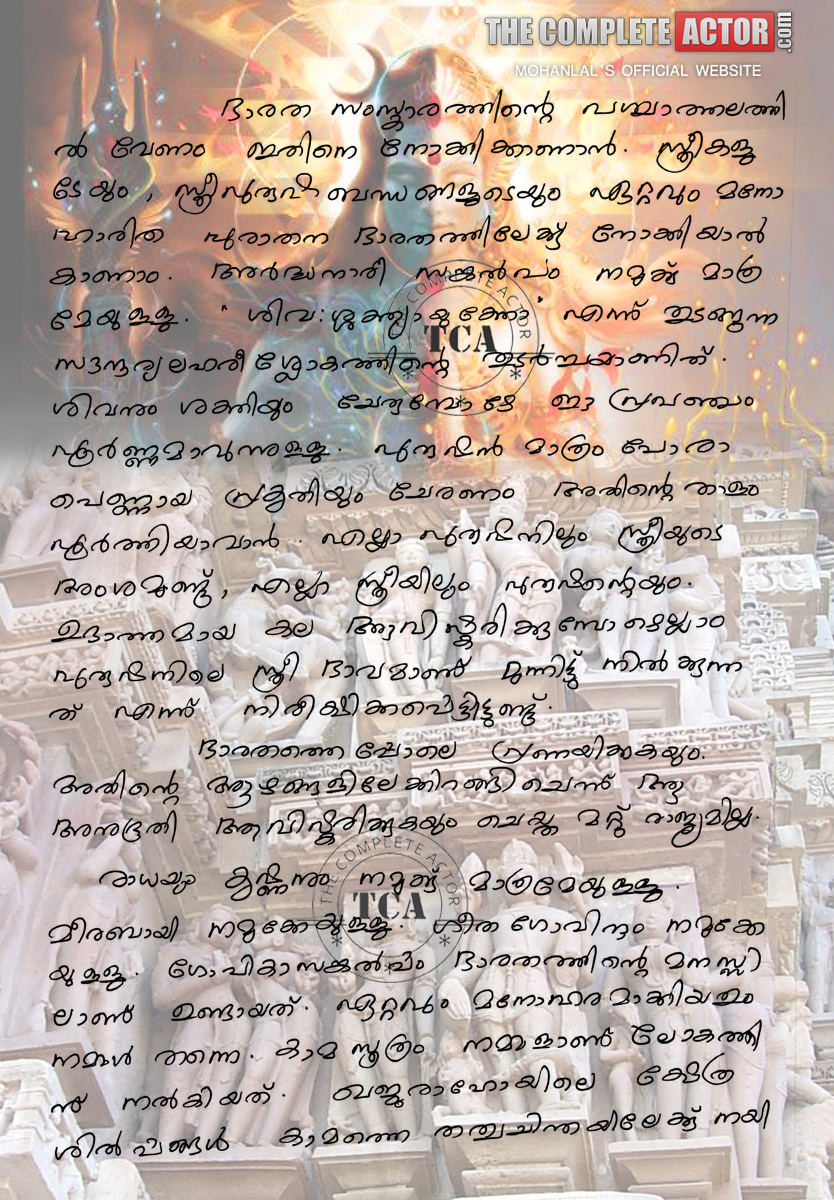 THE COMPLETE ACTOR.com
MOHANLAL'S OFFICIAL WEBSITE
ഭാരത സംസ്കാരത്തിന്റെ പശ്ചാത്തലത്തി
ൽ വേണം ഇതിനെ നോക്കിക്കാണാൻ. സ്ത്രീകളു
ടേയും, സ്ത്രീപുരുഷ ബന്ധങ്ങളുടെയും ഏറ്റവും മനോ
ഹാരിത പുരാതന ഭാരതത്തിലേക്ക് നോക്കിയാൽ
കാണാം. അർദ്ധനാരീ സങ്കൽപം നമുക്ക് മാത്ര
മേയുള്ളു. "ശിവ:ശക്ത്യായുക്തോ" എന്ന് തുടങ്ങുന്ന
സൗന്ദര്യലഹരീ ശ്ലോകത്തിന്റെ തുടർച്ചയാണിത്.
ശിവനും ശക്തിയും ചേരുമ്പോഴേ ഈ പ്രപഞ്ചം
പൂർണ്ണമാവുന്നുള്ളു. പുരുഷൻ മാത്രം പോരാ
പെണ്ണായ പ്രകൃതിയും ചേരണം അതിന്റെ താളം
പൂർത്തിയാവാൻ. എല്ലാ പുരുഷനിലും സ്ത്രീയുടെ
അംശമുണ്ട്, എല്ലാ സ്ത്രീയിലും പുരുഷന്റെയും.
ഉദാത്തമായ കല ആവിഷ്ക്കരിക്കുമ്പോഴെല്ലാം
പുരുഷനിലെ സ്ത്രീ ഭാവമാണ് മുന്നിട്ട് നിൽക്കുന്ന
ത് എന്ന് നിരീക്ഷിക്കപ്പെട്ടിട്ടുണ്ട്.
ഭാരതത്തെപ്പോലെ പ്രണയിക്കുകയും.
അതിന്റെ ആഴങ്ങളിലേക്കിറങ്ങിചെന്ന് ആ
അനുഭൂതി ആവിഷ്ക്കരിക്കുകയും ചെയ്ത മറ്റു രാജ്യമില്ല.
രാധയും കൃഷ്ണനും നമുക്ക് മാത്രമേയുള്ളു.
മീരബായി നമുക്കേയുള്ളു. ഗീത ഗോവിന്ദം നമുക്കേ
യുള്ളു. ഗോപികാസങ്കൽപ്പം ഭാരതത്തിന്റെ മനസ്സി
ലാണ് ഉണ്ടായത്. ഏറ്റവും മനോഹരമാക്കിയതും
നമ്മൾ തന്നെ. കാമ സൂത്രം നമ്മളാണ് ലോകത്തി
ന് നൽകിയത്. ഖജുരാഹോയിലെ ക്ഷേത്ര
ശിൽപ്പങ്ങൾ കാമത്തെ തത്വചിന്തയിലേക്ക് നയി
THE COMPLETE ACTOR
TCA
THE COMPLETE ACTOR
TCA